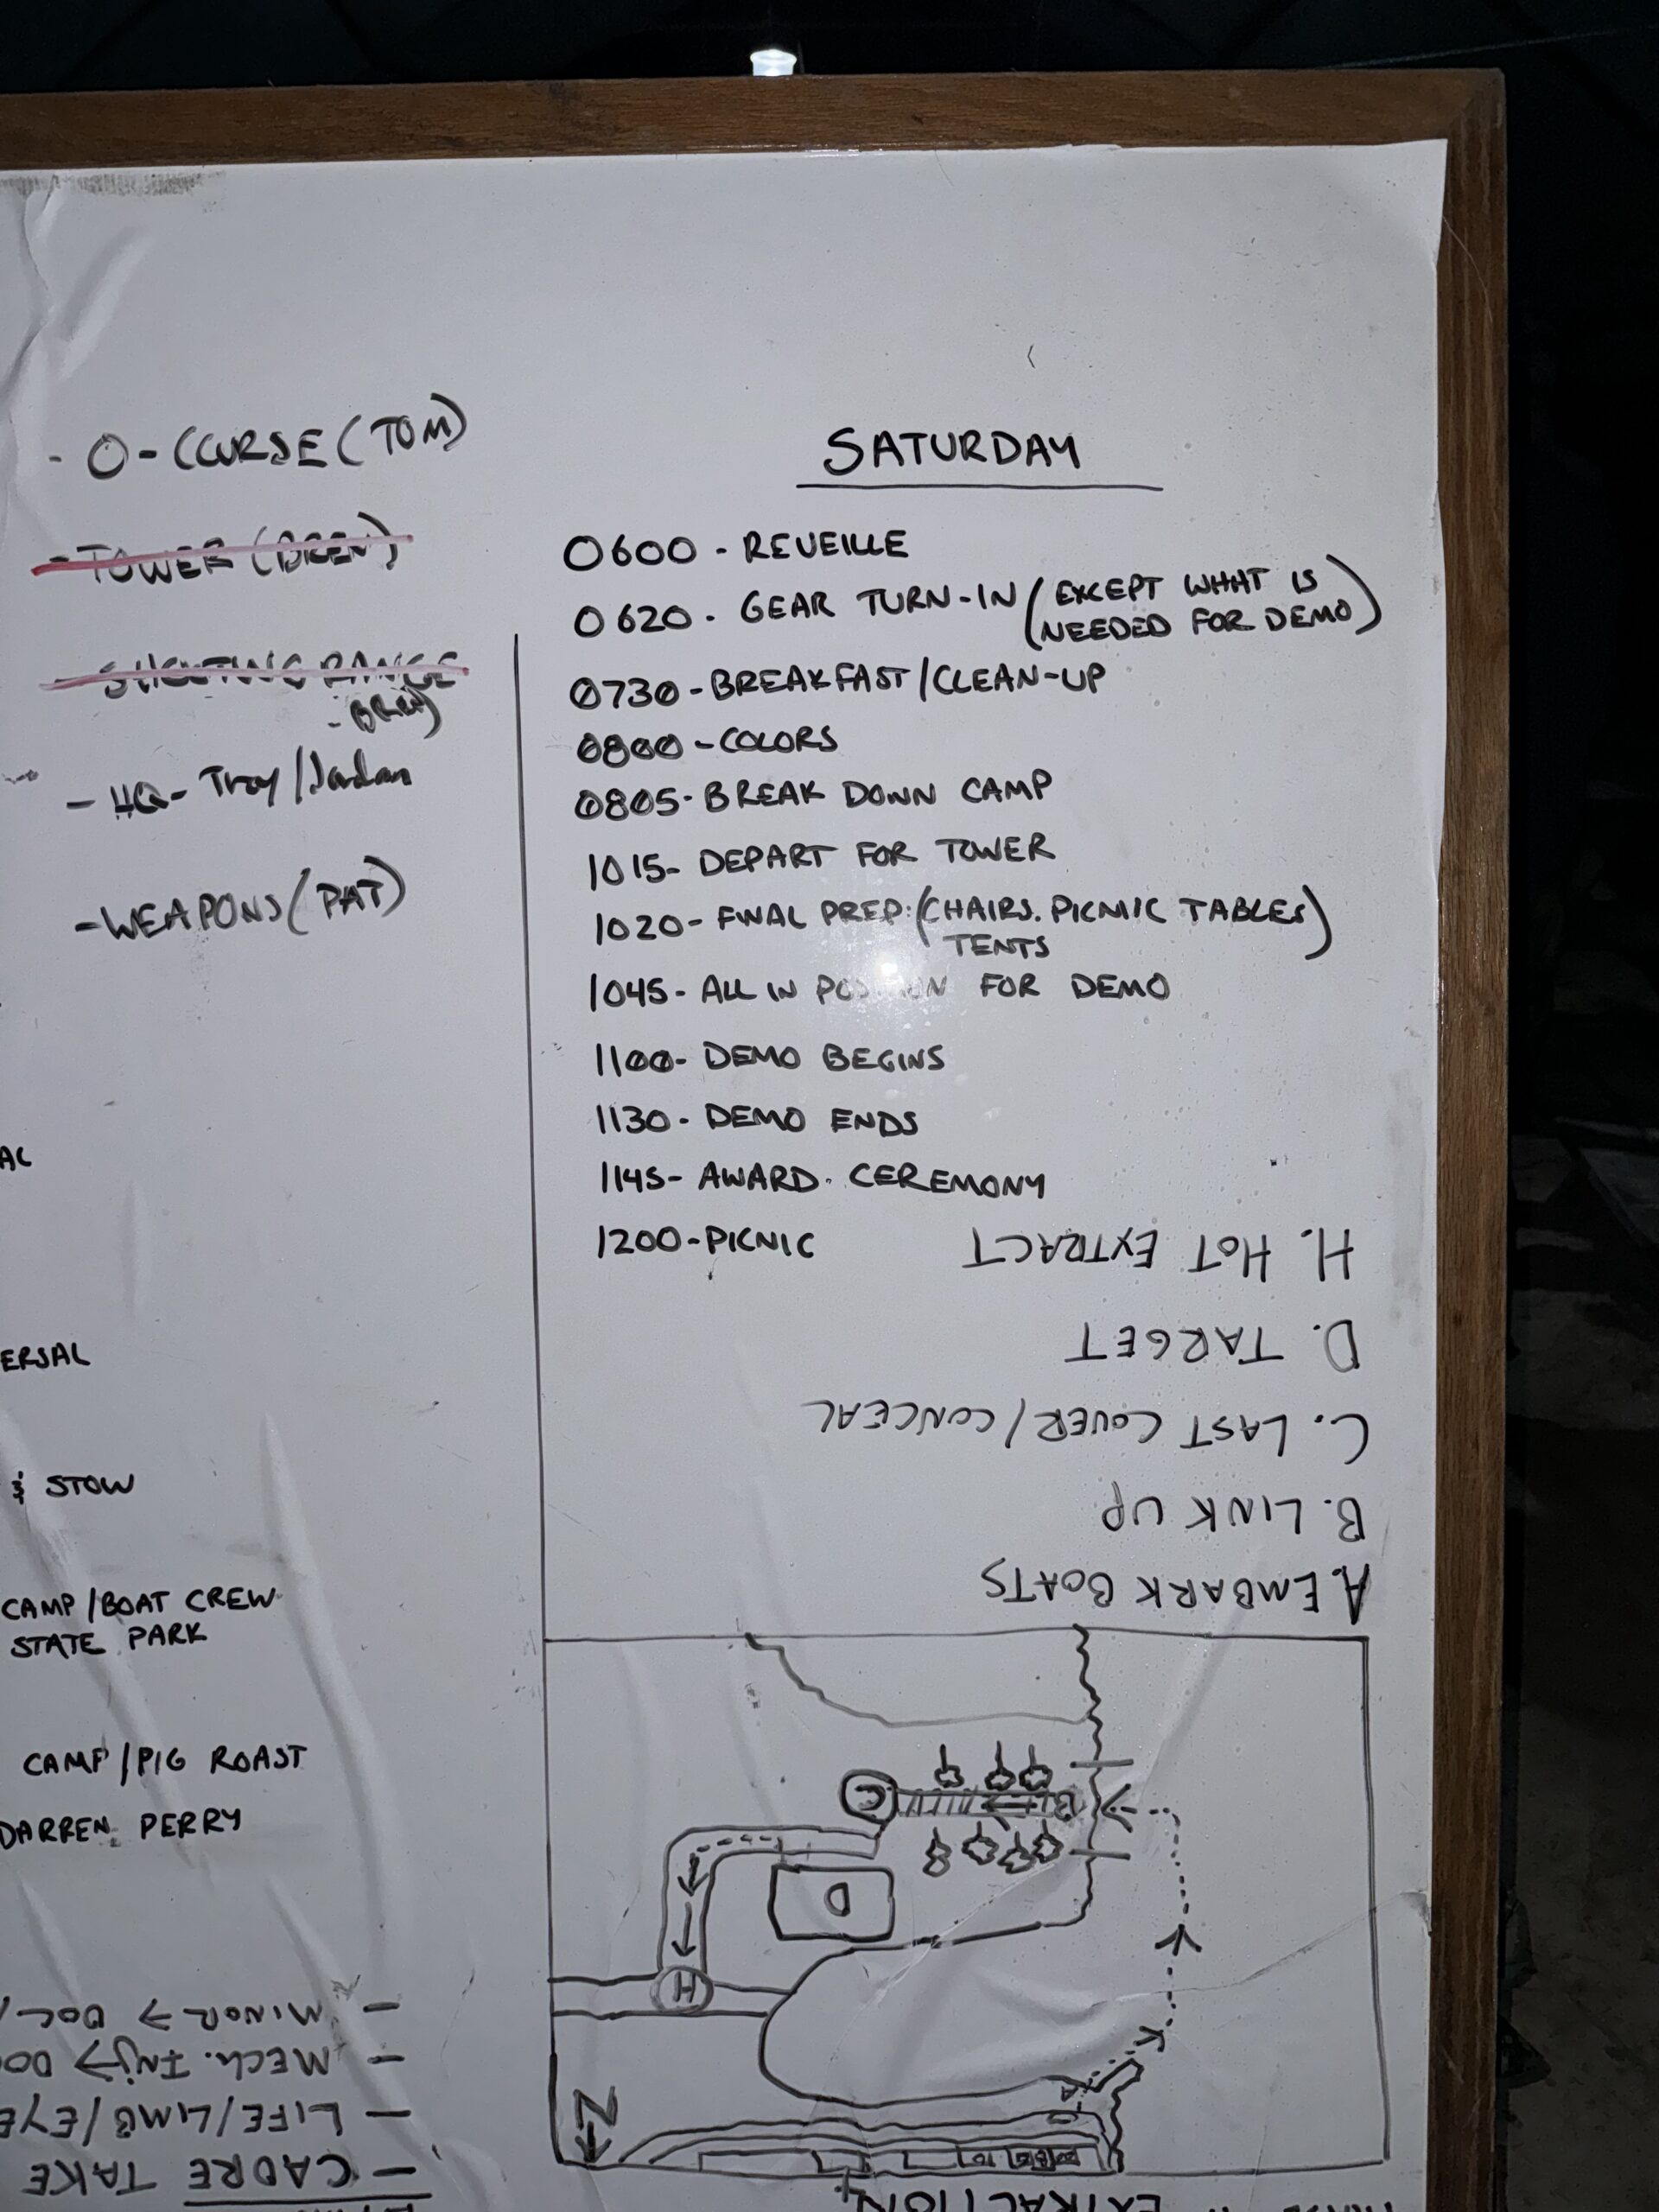 - O-COURSE (TOM)
- TOWER (BREN)
- SHOOTING RANGE
- HQ - Troy/Jordan
- WEAPONS (PAT)
AC
ERSAL
& STOW
CAMP/BOAT CREW
STATE PARK
CAMP/PIG ROAST
DARREN PERRY
SATURDAY
0600 - REVEILLE
0620 - GEAR TURN-IN (EXCEPT WHAT IS
NEEDED FOR DEMO)
0730 - BREAKFAST/CLEAN-UP
0800 - COLORS
0805 - BREAK DOWN CAMP
1015 - DEPART FOR TOWER
1020 - FINAL PREP: (CHAIRS. PICNIC TABLES)
TENTS
1045 - ALL IN POSITION FOR DEMO
1100 - DEMO BEGINS
1130 - DEMO ENDS
1145 - AWARD CEREMONY
1200 - PICNIC
A. EMBARK BOATS
B. LINK UP
C. LAST COVER/CONCEAL
D. TARGET
H. HOT EXTRACT
B
C
D
H
N
EXTRACTION
- CADRE TAKE
- LIFE/LIMB/EYE
- MECH. INJ → DO
- MINOR → DOC/